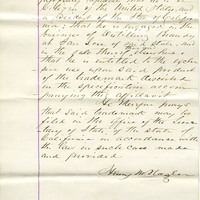 citizen of the United States and
a resident of the State of Califor
nia; that he is engaged in the
business of Distilling Brandy
at San Jose in said State, and
in the sale thereof
that he is entitled to the exclu
sive use upon said product
of the trademark described
in the specification accom
panying this affidavit.
He therefore prays
that said trademark may be
filed in the office of the Secre
tary of State, of the State of
California in accordance with
the law in such case made
and provided
Henry M. Naglee